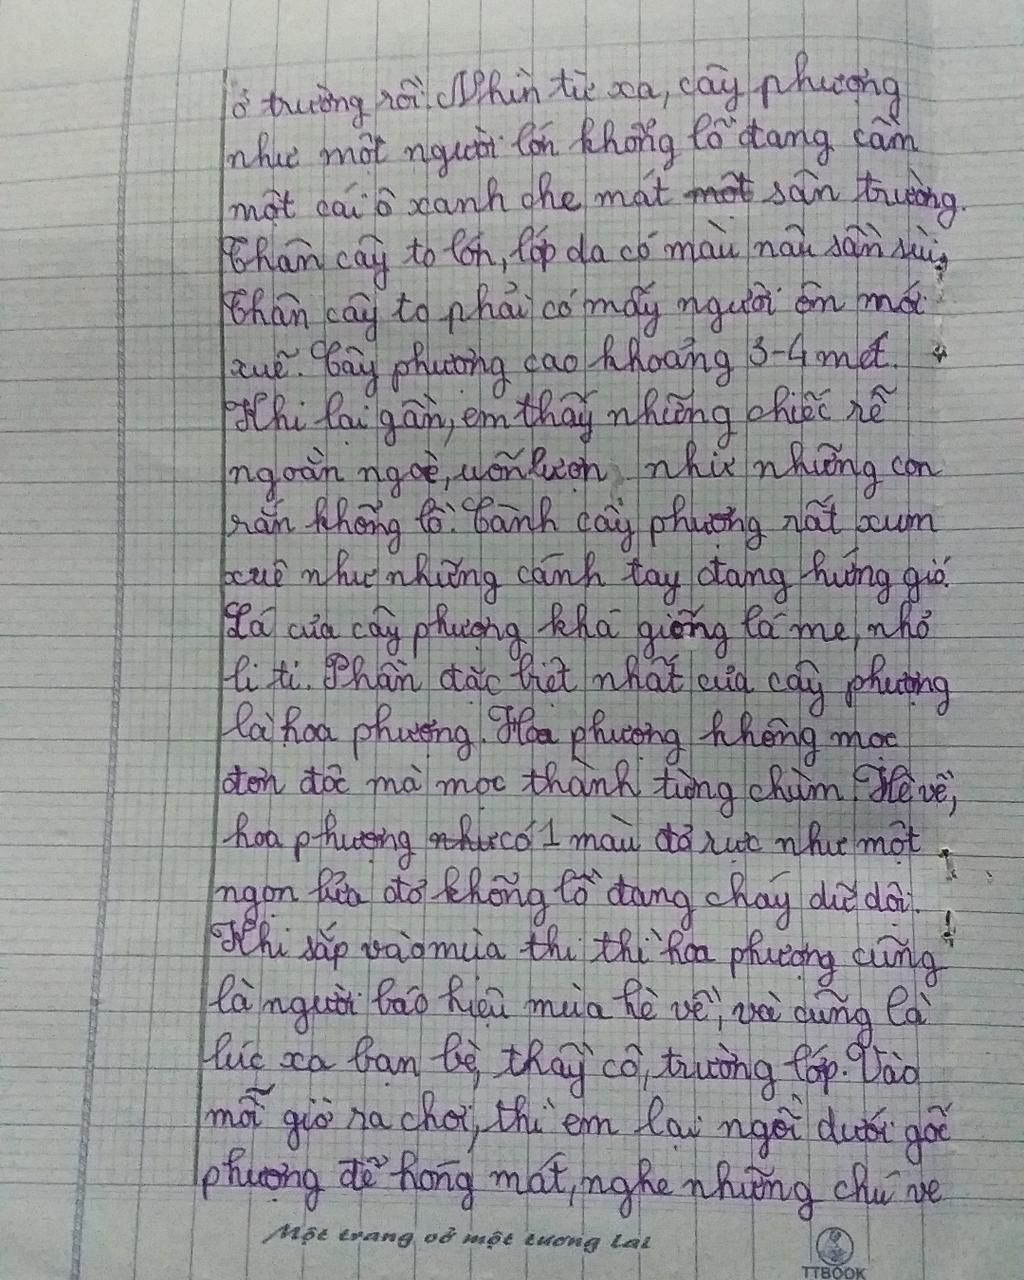 ở trường rồi. Nhìn từ xa, cây phượng
như một người lớn khổng lồ đang cầm
một cái ô xanh che mát một sân trường.
Thân cây to lớn, lớp da có màu nâu sần sùi,
thân cây to phải có mấy người ôm mới
xuể. Cây phượng cao khoảng 3-4 mét.
Khi lại gần, em thấy những chiếc rễ
ngoằn ngoè, uốn lượn như những con
rắn khổng lồ. Cành cây phượng rất xum
xuê như những cánh tay đang hứng gió.
Lá của cây phượng khá giống lá me, nhỏ
li ti. Phần đặc biệt nhất của cây phượng
là hoa phượng. Hoa phượng không mọc
đơn độc mà mọc thành từng chùm. Hè về,
hoa phượng như có 1 màu đỏ rực như một
ngọn lửa đỏ khổng lồ đang cháy dữ dội.
Khi sắp vào mùa thi thì hoa phượng cũng
là người báo hiệu mùa hè về, và cũng là
lúc xa bạn bè, thầy cô, trường lớp. Vào
mỗi giờ ra chơi, thì em lại ngồi dưới gốc
phượng để hóng mát, nghe những chú ve
Một trang vở một tương lai
TTBOOK